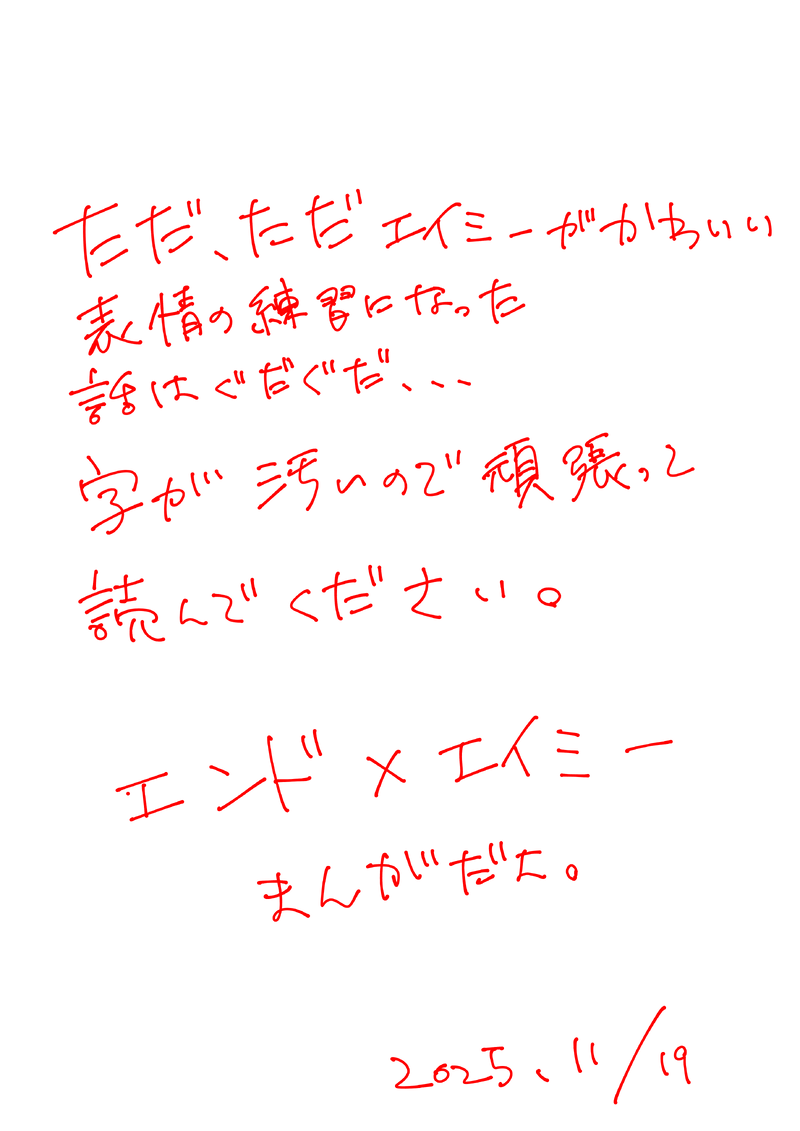 ただ、ただエイミーがかわいい
表情の練習になった
話はぐだぐだ、、、
字が汚いので頑張って
読んでください。
エンド×エイミー
まんがだよ。
2025、11/19